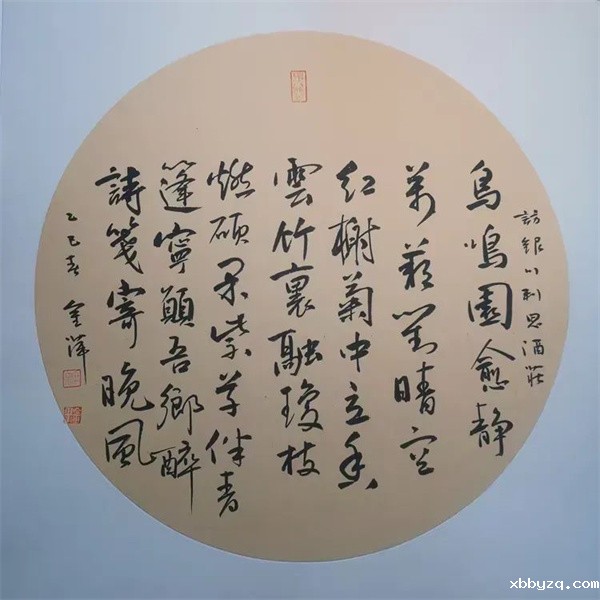 訪銀川利思酒莊
鳥鳴園愈靜
萬對晴空
紅榭菊中立香
雲竹裏融瓊枝
燃碩果紫草伴青
篷寧願吾鄉醉
詩箋寄晚風
乙巳春 金
xbbyzq.com